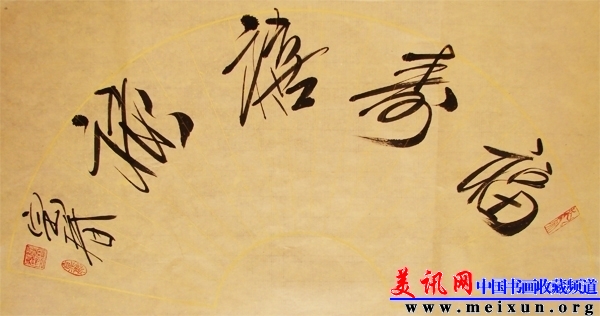 福寿禧禄
美讯网 中国书画收藏频道
www.meixun.org